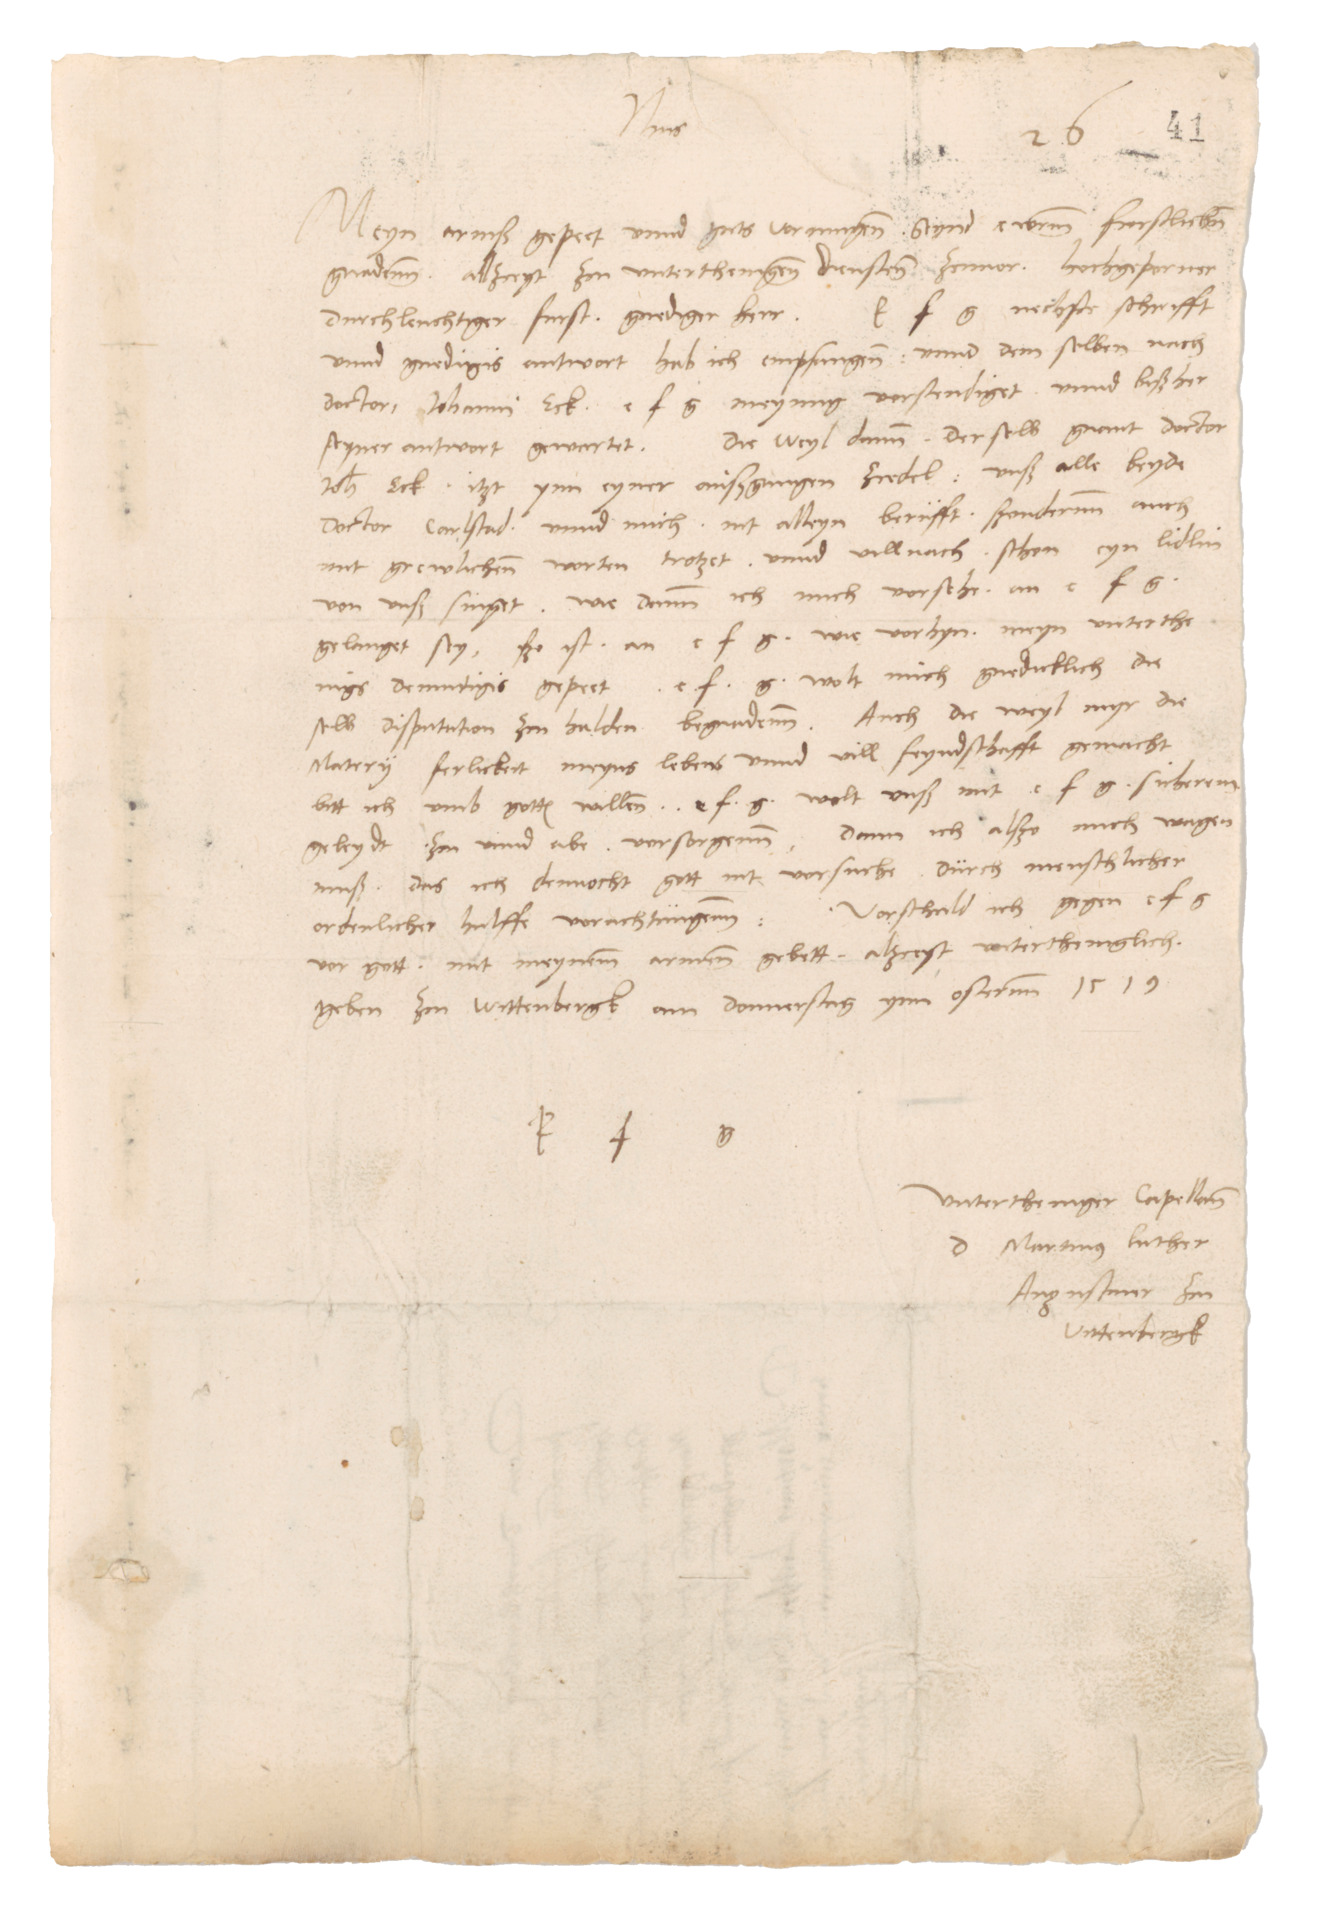 Jhus
26 41
Meyn armß gepeet vnnd guts vormugenn. Seynd ewrnn furstlichenn
gnadenn. allzceyt zu unterthenigenn diensten zuuor. hochgeporner
durchleuchtiger furst. gnediger herr. E f g nechste schrifft
vnnd gnedigis antwort hab ich empfangenn: vnnd dem selben nach
doctori Iohanni Eck. e f g meynung vorstendiget. vnnd bißher
seyner antwort gewartet. Die weyl dann. derselb gnant doctor
Joh Eck. itzt ynn eyner außgangen zcedel: vnß alle beyde
doctor Carlstad. vnnd mich. nit alleyn berufft. szonderun auch
mit grewlichenn worten trotzet. vnnd villnach. schon eyn lidlin
von vnß singet. wie dann ich mich vorsehe. an e f g.
gelanget sey, szo ist. an e f g. wie vorhyn. meyn unterthe
nigs demutigis gepeet. e f. g. wolt mich gnedicklich die
selb disputation zu halden begnadenn. Auch die weyl myr die
Matery ferlickeit meyns lebens vnnd vill feyndschafft gemacht
bitt ich vmb gottis willen.. e f. g. wolt vnß mit e f g. sicherem
geleydt zu vnnd abe. vorsorgenn, dann ich alßo mich wagen
muß. das ich dennocht gott nit vorsuche. durch menschlicher
ordenlicher hulffe vorachtungenn: Vorschuld ich gegen e f g
vor gott. mit meynem armen gebett. alzceyt vnterthenigklich.
Geben zu Wittenbergk am donnerstag ynn osternn 1519
E f g
Vntertheniger Capellann
D Martinus Luther
Augustiner zu
Vittenbergk